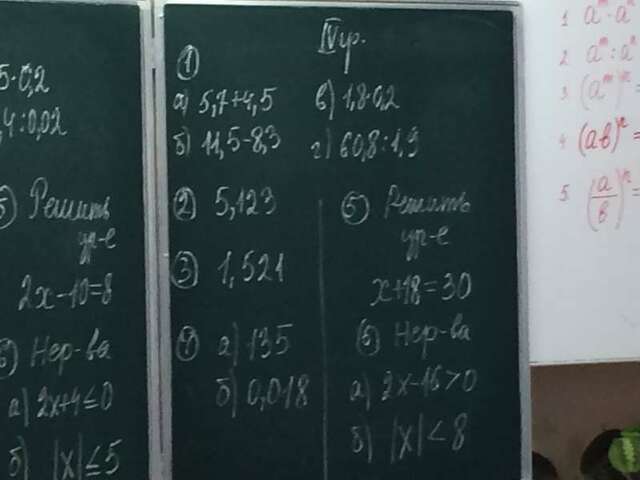 5·0,2
,4:0,02
5) Решить
ур-е
2x-10=8
6) Нер-ва
а) 2x+4≤0
б) |x|≤5
IVур.
1
а) 5,7+4,5
б) 11,5-8,3
в) 1,8·0,2
г) 60,8:1,9
2 5,123
3 1,521
4 а) 135
б) 0,018
5 Решить
ур-е
x+18=30
6 Нер-ва
а) 2x-16>0
б) |x|<8
1 aᵐ·aⁿ
2 aᵐ:aⁿ
3 (aᵐ)ⁿ=
4 (ab)ⁿ=
5. (a/b)ⁿ=